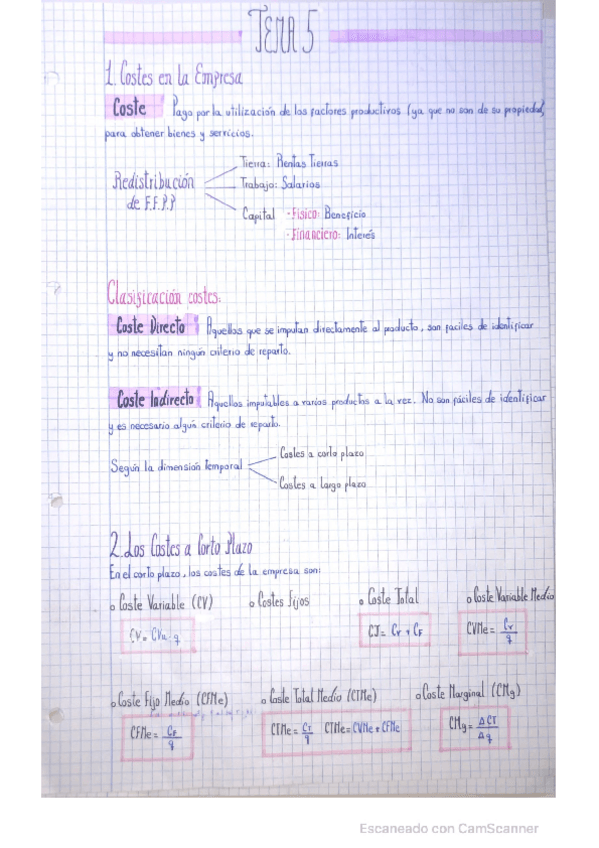 TEMA 5
1. Costes en la Empresa
Coste Pago por la utilización de los factores productivos (ya que no son de su propiedad)
para obtener bienes y servicios.
Redistribución
de F.F.P.P
Tierra: Rentas Tierras
Trabajo: Salarios
Capital · Físico: Beneficio
· Financiero: Interés
Clasificación costes:
Coste Directo Aquellos que se imputan directamente al producto, son faciles de identificar
y no necesitan ningún criterio de reparto.
Coste Indirecto Aquellos imputables a varios productos a la vez. No son fáciles de identificar
y es necesario algún criterio de reparto.
Según la dimensión temporal
Costes a corto plazo
Costes a largo plazo
2. Los Costes a Corto Plazo
En el corto plazo, los costes de la empresa son:
o Coste Variable (CV) o Costes Fijos o Coste Total o Coste Variable Medio
CV = CVu · q CT = Cv + CF CVMe = Cv / q
o Coste Fijo Medio (CFMe) o Coste Total Medio (CTMe) o Coste Marginal (CMg)
CFMe = CF / q CTMe = CT / q CTMe = CVMe + CFMe CMg = ΔCT / Δq
Escaneado con CamScanner